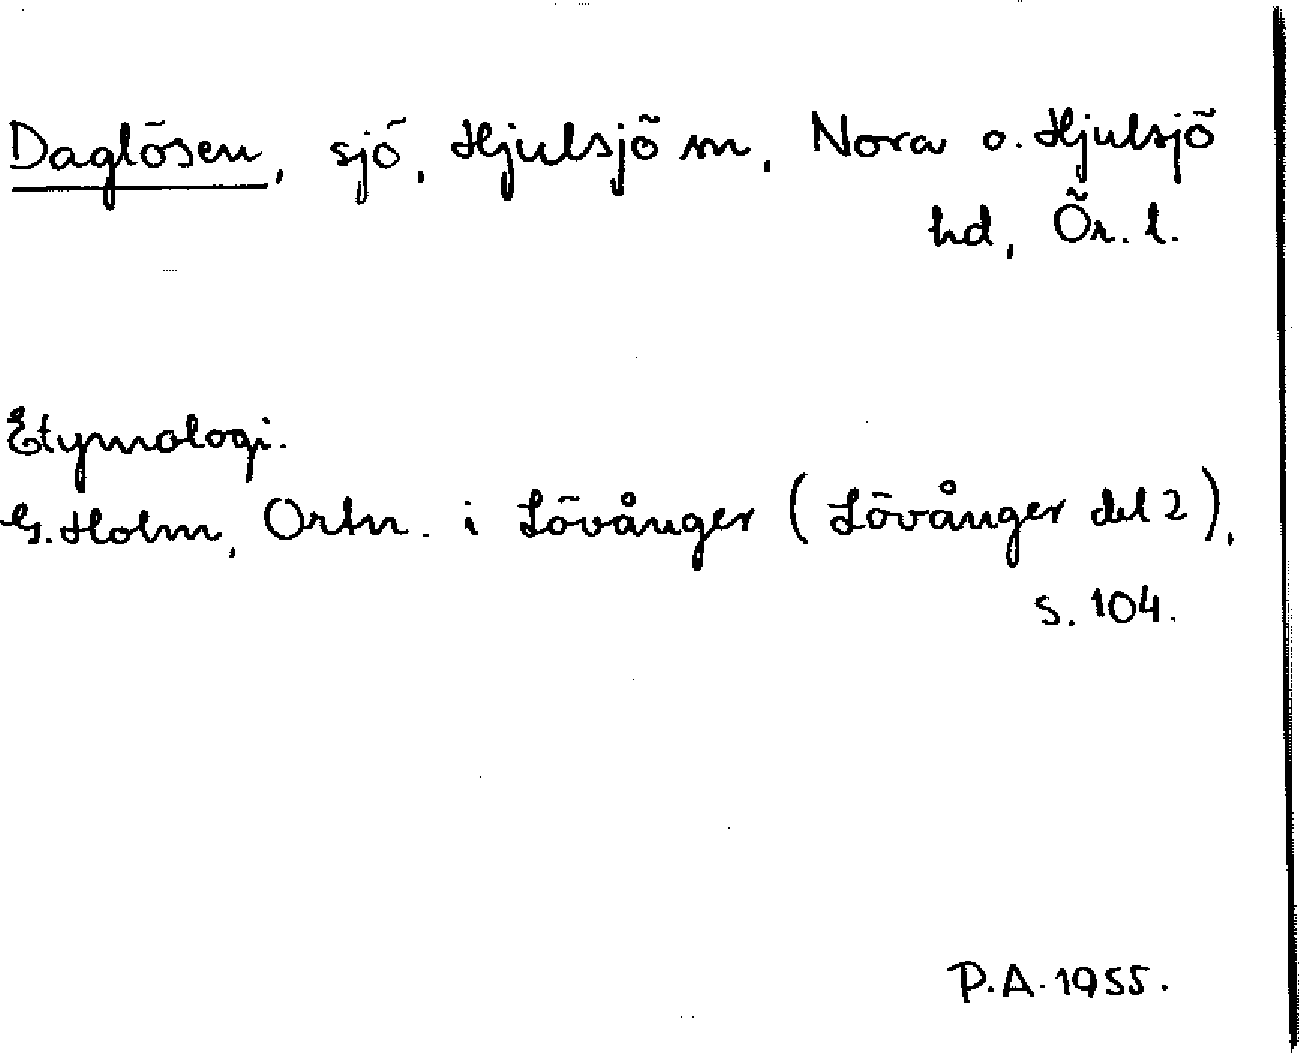 Daglösen, sjö, Hjulsjö sn, Nora o. Hjulsjö
hd, Ör. l.
Etymologi.
G. Holm, Ortn. i Lövånger (Lövånger del 2),
s. 104.
P.A. 1955.